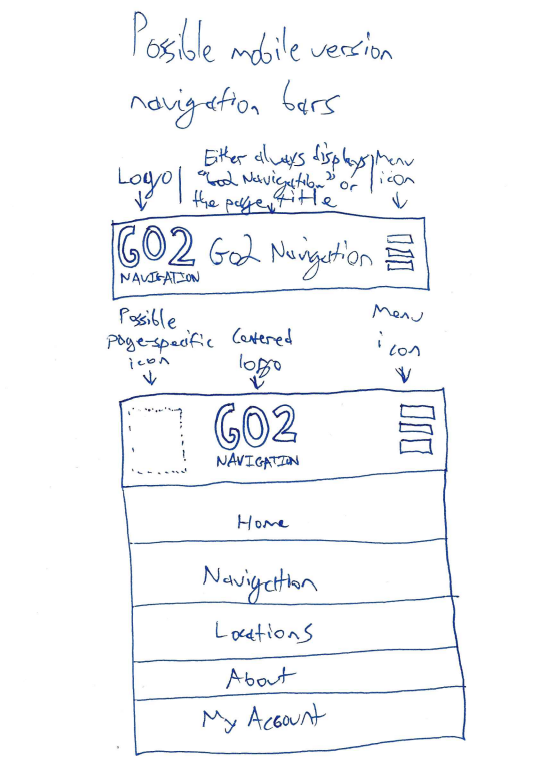 Possible mobile version
navigation bars
Logo
Either always displays
"Go2 Navigation" or
the page title
Menu
icon
GO2
NAVIGATION
Go2 Navigation
Possible
page-specific
icon
Centered
logo
Menu
icon
GO2
NAVIGATION
Home
Navigation
Locations
About
My Account